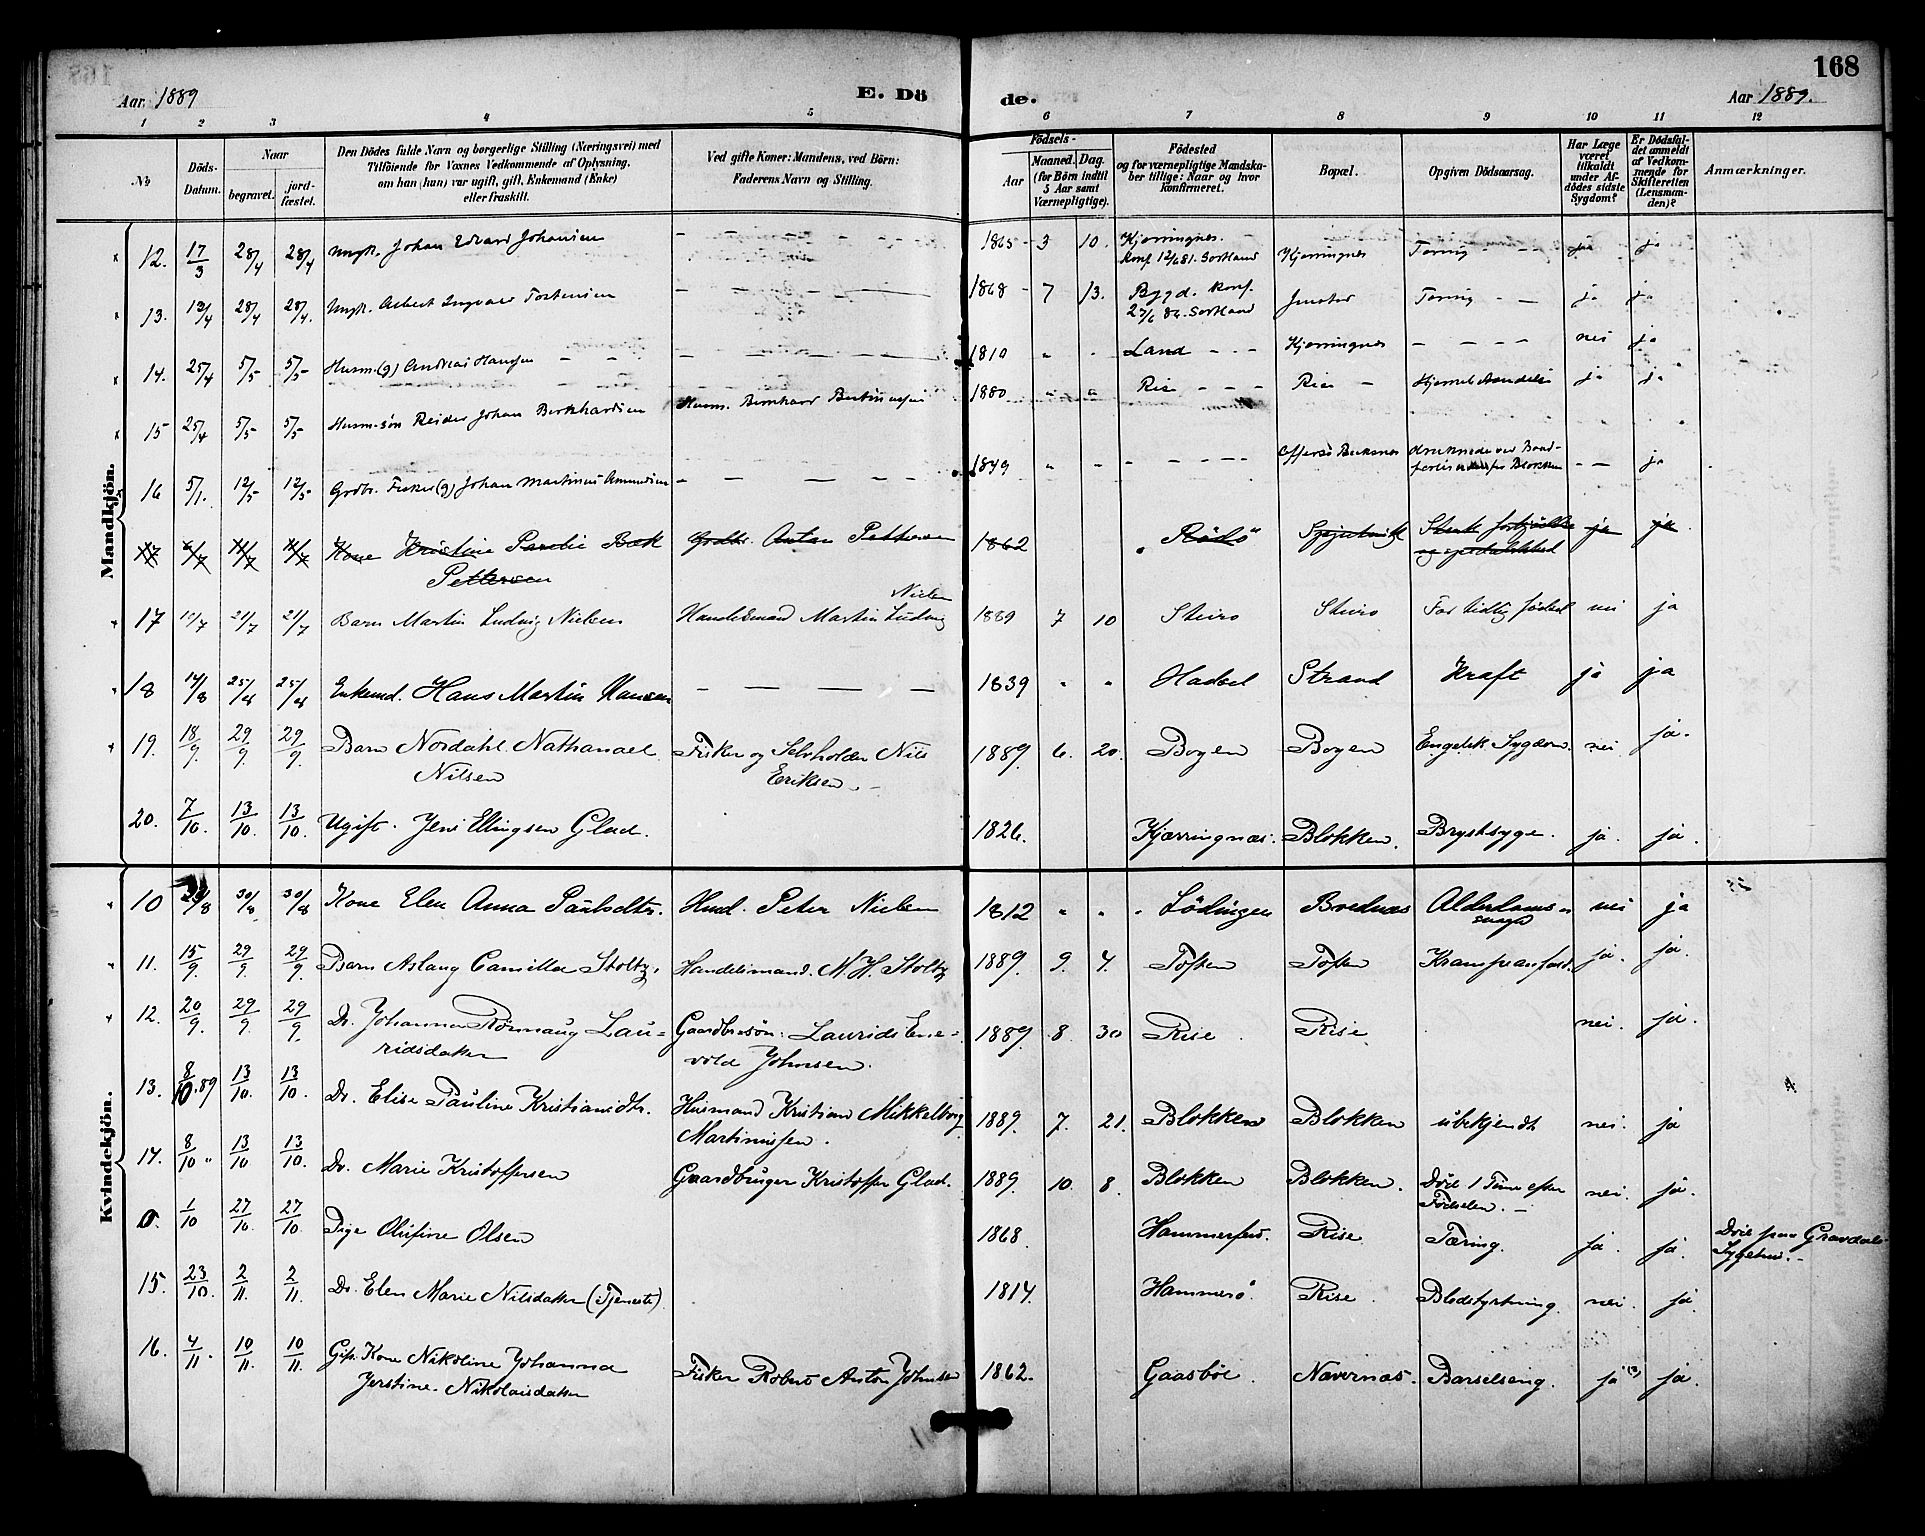 168
Aar 1889
E. Dö
de.
Aar 1889.
1 2 3 4 5 6 7 8 9 10 11 12
No
Döds-Datum.
Naar
begravet.
jordfæstet.
Den Dödes fulde Navn og borgerlige Stilling (Næringsvei) med
Tilföiende for Voxnes Vedkommende af Oplysning,
om han (hun) var ugift, gift, Enkemand (Enke)
eller fraskilt.
Ved gifte Koner: Mandens, ved Börn:
Faderens Navn og Stilling.
Födsels-
Aar
Maaned. Dag.
(for Börn indtil
5 Aar samt
Værnepligtige).
Födested
og for værnepligtige Mandska-
ber tillige: Naar og hvor
konfirmeret.
Bopæl.
Opgiven Dödsaarsag.
Har Læge
været
tilkaldt
under Af-
dödes sidste
Sygdom?
Er Dödsfal-
det anmeldt
af Vedkom-
mende for
Skifteretten
(Lensman-
den)?
Anmærkninger.
Mandkjön.
12. 17/3 28/4 28/4 Ungk. Johan Edvard Johansen 1865 3 10. Kjerringnes. Konf. 12/6 81. Sortland Kjerringnes Tæring ja ja
13. 13/4 28/4 28/4. Ungk. Albert Ingvald Tostensen 1868 7 13. Bygd. Konf. 27/6 84. Sortland Jennestad Tæring ja ja
14. 25/4 5/5 5/5 Husm. (g) Andreas Hansen 1810 " " Land Kjerringnes nei ja
15 25/4 5/5 5/5 Husm. søn Reider Johan Bernhardsen Husm. Bernhard Bertinussen 1880 " " Rise Rise ja ja
16 5/1. 12/5 12/5 Grdbr. Fisker (g) Johan Martinus Amundsen 1849 " Offersö Buksnes druknede ved Baad-
forlis udenfor Blokken ja
17 1/7 11/7 11/7 Kone Kristine Bak Grdbr. Anton Pettersen 1862 "Rödö" ja ja
Pettersen
17 21/7 21/7 Barn Martin Ludvig Nielsen Handelsmand Martin Ludvig Nielsen 1889 7 10 Steiro Steiro For tidlig födsel nei ja
18 14/8 25/8 25/8 Enkemd. Hans Martin Hansen 1839 " " Hadsel Strand Kraft ja ja
19. 18/9. 29/9. 29/9. Barn Nordahl Nathanael Fisker og Selvholder Nils 1889. 6. 20. Bogen Bogen Engelsk Sygdom. nei ja.
Nilsen Eriksen.
20. 7/10. 13/10. 13/10. Ugift. Jens Ellingsen Glad. 1826. Kjærringnæs. Blokken. Brystsyge. ja. ja.
Kvindekjön.
10 30/8 30/8 Kone Elen Anna Paulsdtr. Hmd. Peter Nielsen 1812 " " Lödingen Brednæs Alderdoms-
svaghed nei ja
11. 15/9. 29/9. 29/9. Barn Aslaug Camilla Stoltz. Handelsmand. N. H. Stoltz 1889. 9. 4. Toften Toften Krampeanfald. ja. ja.
12. 20/9. 29/9. 29/9. Do. Johanna Rönnaug Lau- Gaardbrsøn. Laurids Ene- 1889. 8. 30 Rise Rise. nei. ja.
ridsdatter vold Johnsen.
13. 8/10.89 13/10. 13/10. Do. Elise Pauline Kristiansdtr. Husmand Kristian Mikkelborg 1889. 7. 21. Blokken Blokken ubekjendt nei. ja
Martinussen.
14. 8/10 " 13/10. 13/10. Do. Marie Kristoffersen Gaardbruger Kristoffer Glad. 1889. 10. 8. Blokken Blokken. Död 1 Time efter nei. ja.
Födselen.
0. 1/10 27/10. 27/10. Pige Olufine Olsen 1868. Hammerfest. Rise. Tæring. ja. ja. Död paa Gravdals
Sygehus.
15. 23/10. 2/11. 2/11. Do. Elen Marie Nilsdatter (Tjeneste) 1814. Hammerö Rise. Blodstyrtning. nei. ja.
16. 4/11. 10/11. 10/11. Gift. Kone Nikoline Johanna Fisker Robert Anton Johnsen 1862. Gaasböl. Navernæs. Barselseng. ja (?) ja.
Jerstine Nikolaisdatter